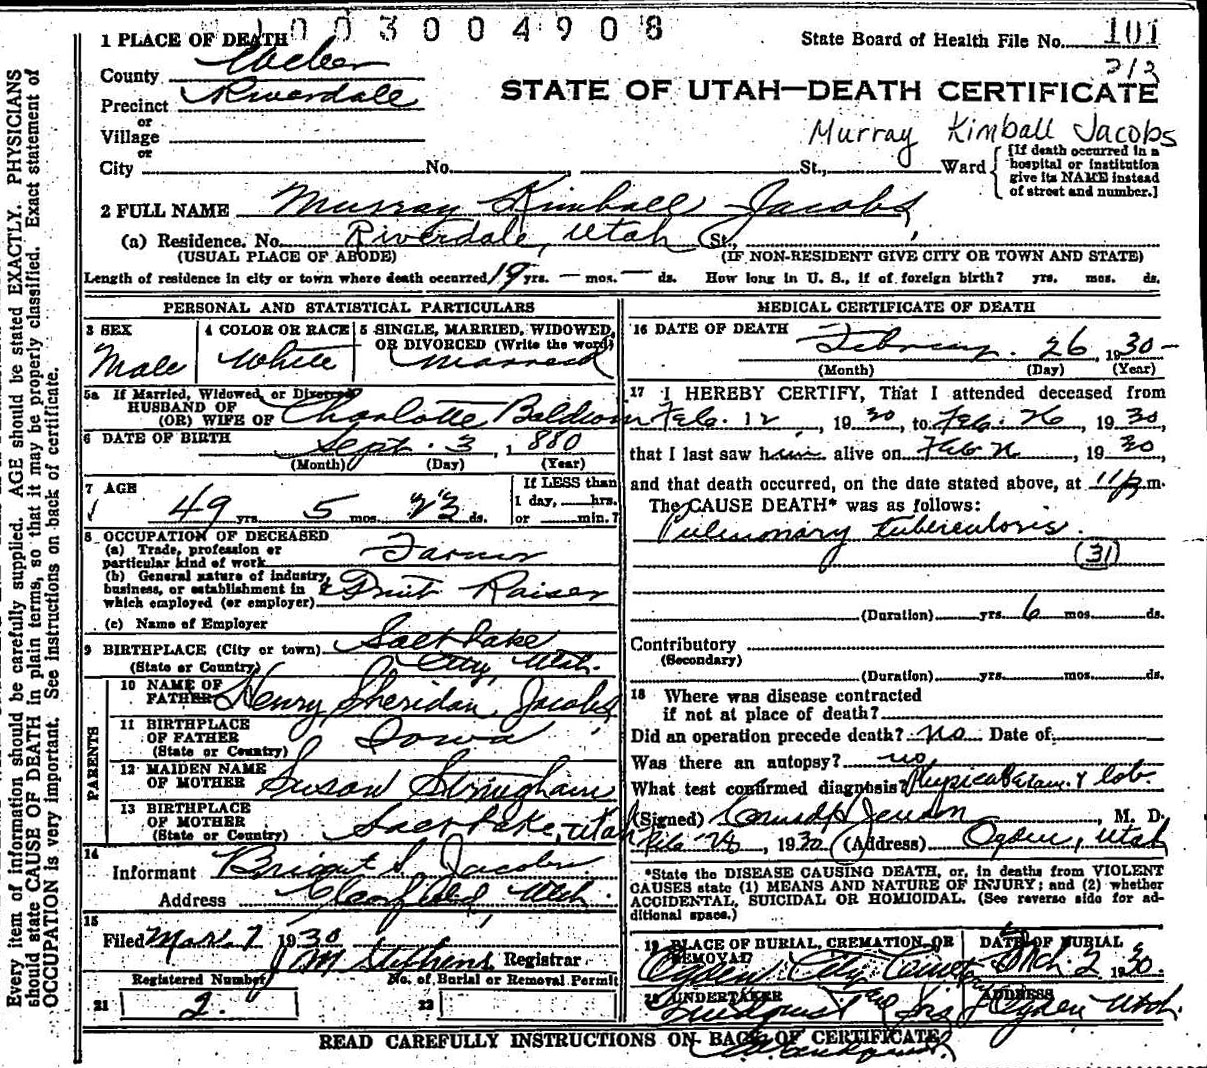 1003004908
1 PLACE OF DEATH
State Board of Health File No. 101
County Weber
212
Precinct Riverdale
STATE OF UTAH—DEATH CERTIFICATE
or
Village
Murray Kimball Jacobs
or
City No. St., Ward
[If death occurred in a
hospital or institution
give its NAME instead
of street and number.]
2 FULL NAME Murray Kimball Jacobs
(a) Residence. No. Riverdale, Utah St.,
(USUAL PLACE OF ABODE) (IF NON-RESIDENT GIVE CITY OR TOWN AND STATE)
Length of residence in city or town where death occurred 19 yrs. — mos. — ds. How long in U. S., if of foreign birth? yrs. mos. ds.
PERSONAL AND STATISTICAL PARTICULARS
3 SEX
Male
4 COLOR OR RACE
White
5 SINGLE, MARRIED, WIDOWED,
OR DIVORCED (Write the word)
Married
5a If Married, Widowed, or Divorced
HUSBAND OF
(OR) WIFE OF Charlotte Baldwin
6 DATE OF BIRTH Sept. 3, 1880
(Month) (Day) (Year)
7 AGE
49 yrs. 5 mos. 23 ds.
If LESS than
1 day, hrs.
or min.?
8 OCCUPATION OF DECEASED
(a) Trade, profession or
particular kind of work Farmer
(b) General nature of industry,
business, or establishment in
which employed (or employer) & Fruit Raiser
(c) Name of Employer
9 BIRTHPLACE (City or town) Salt Lake
(State or Country) City, Utah.
PARENTS
10 NAME OF
FATHER Henry Sheridan Jacobs
11 BIRTHPLACE
OF FATHER
(State or Country) Iowa
12 MAIDEN NAME
OF MOTHER Susan Stringham
13 BIRTHPLACE
OF MOTHER
(State or Country) Salt Lake, Utah
14
Informant Jacobs
Address Clearfield Utah
15
Filed Mar. 7 1930
J M Stephens Registrar
Registered Number No. of Burial or Removal Permit
21 2. 22
MEDICAL CERTIFICATE OF DEATH
16 DATE OF DEATH
February 26, 1930
(Month) (Day) (Year)
17 I HEREBY CERTIFY, That I attended deceased from
Feb. 12, 1930, to Feb. 26, 1930,
that I last saw him alive on Feb 1930,
and that death occurred, on the date stated above, at m.
The CAUSE DEATH* was as follows:
Pulmonary tuberculosis.
(31)
(Duration) yrs. 6 mos. ds.
Contributory
(Secondary)
(Duration) yrs. mos. ds.
18 Where was disease contracted
if not at place of death?
Did an operation precede death? no Date of
Was there an autopsy? no
What test confirmed diagnosis? Physical Exam. & lab.
(Signed) Jenson, M. D.
1930 (Address) Ogden, Utah
*State the DISEASE CAUSING DEATH, or, in deaths from VIOLENT
CAUSES state (1) MEANS AND NATURE OF INJURY; and (2) whether
ACCIDENTAL, SUICIDAL OR HOMICIDAL. (See reverse side for ad-
ditional space.)
19 PLACE OF BURIAL, CREMATION, OR
REMOVAL
Ogden City Cemetery
DATE OF BURIAL
Mch. 2 1930
20 UNDERTAKER
Lindquist & Sons
ADDRESS
Ogden Utah.
READ CAREFULLY INSTRUCTIONS ON BACK OF CERTIFICATE
Every item of information should be carefully supplied. AGE should be stated EXACTLY. PHYSICIANS
should state CAUSE OF DEATH in plain terms, so that it may be properly classified. Exact statement of
OCCUPATION is very important. See instructions on back of certificate.